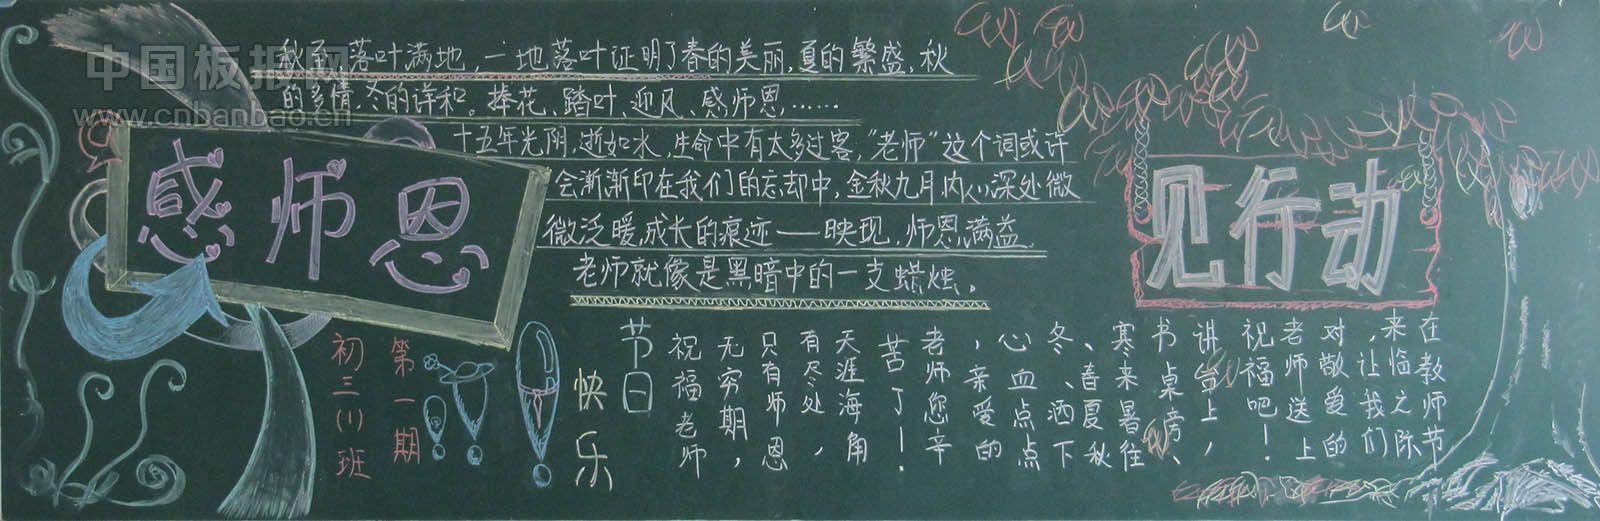 中国板报网
www.cnbanbao.cn
感师恩
见行动
秋至,落叶满地,一地落叶证明了春的美丽,夏的繁盛,秋
的多情,冬的详和。捧花、踏叶、迎风、感师恩……
十五年光阴,逝如水,生命中有太多过客,“老师”这个词或许
会渐渐印在我们的忘却中,金秋九月内心深处微
微泛暖,成长的痕迹——映现,师恩满益,
老师就像是黑暗中的一支蜡烛。
在教师节
来临之际
,让我们
对敬爱的
老师送上
祝福吧!
讲台上,
书桌旁、
寒来暑往
、春夏秋
冬、洒下
心血点点
,亲爱的
老师您辛
苦了!
天涯海角
有尽处,
只有师恩
无穷期,
祝福老师
节日
快乐
第一期
初三(1)班